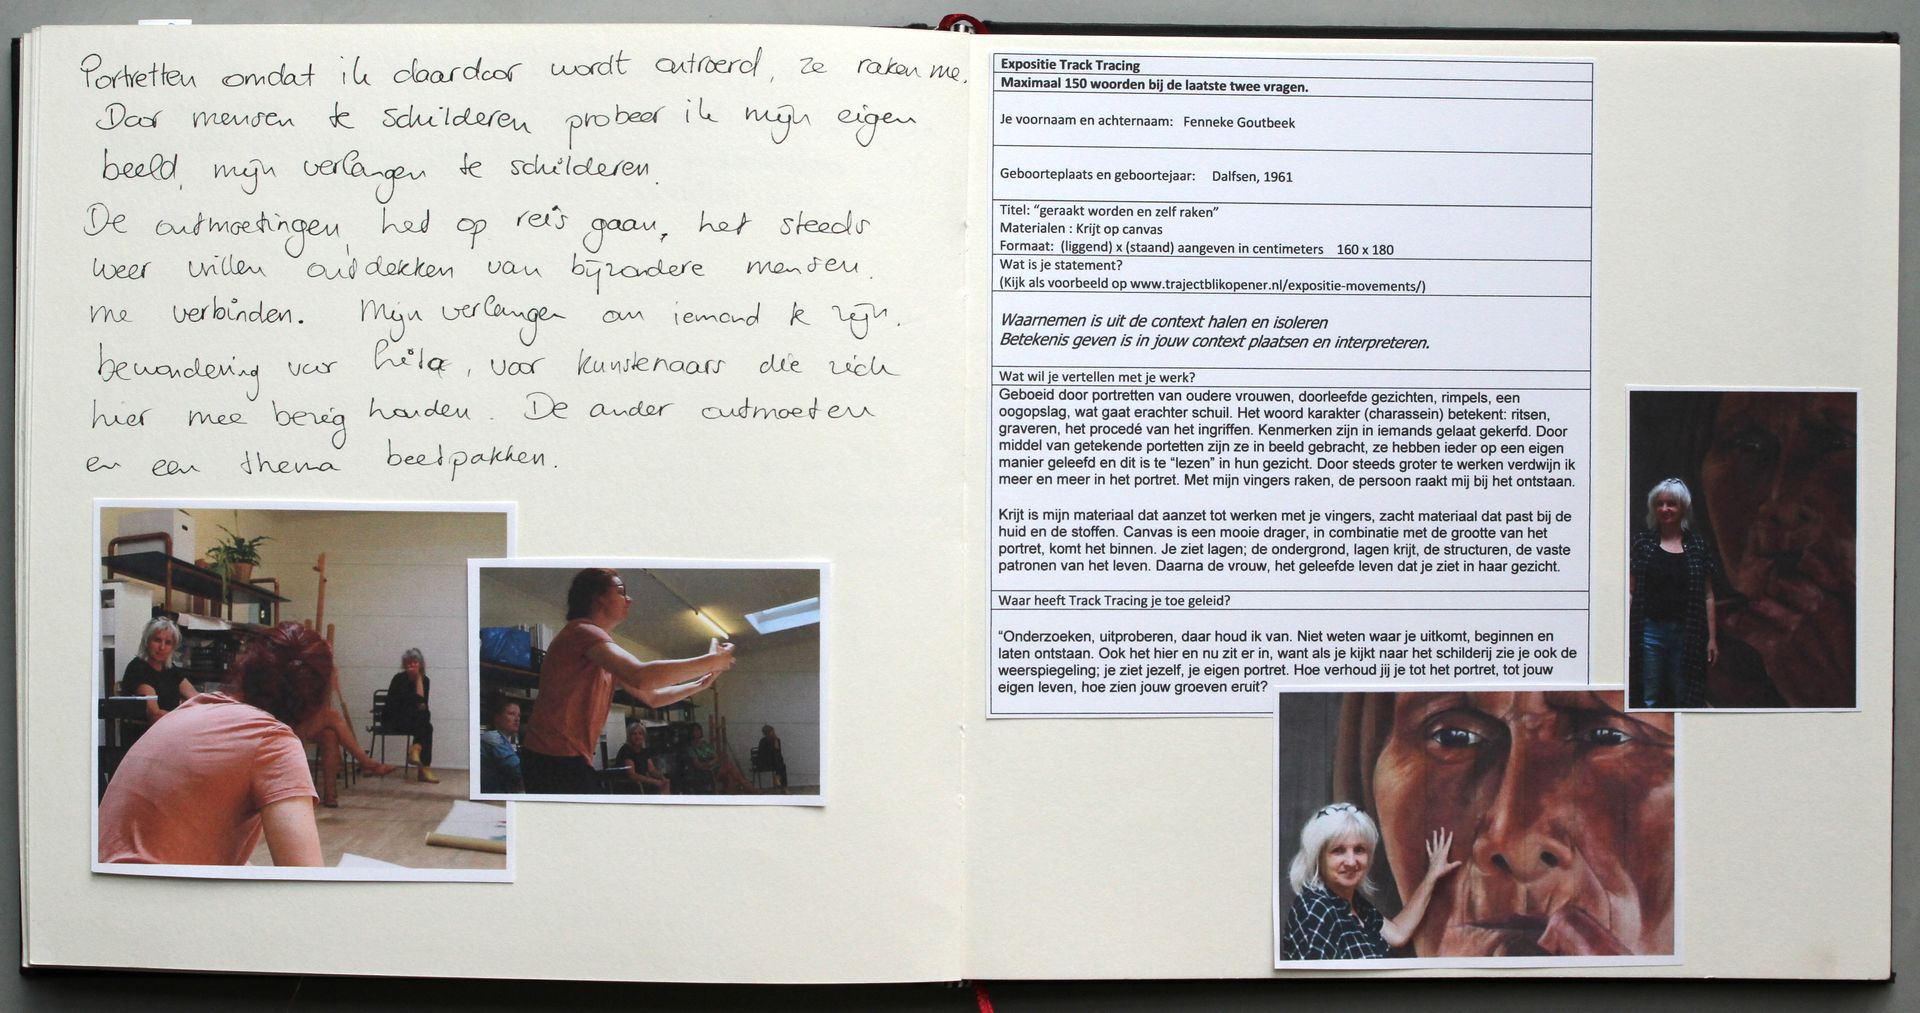 Portretten omdat ik daardoor wordt ontroerd, ze raken me.
Door mensen te schilderen probeer ik mijn eigen
beeld, mijn verlangen te schilderen.
De ontmoetingen, het op reis gaan, het steeds
weer willen ontdekken van bijzondere mensen.
me verbinden. Mijn verlangen om iemand te zijn.
bewondering voor , voor kunstenaars die zich
hier mee bezig houden. De ander ontmoeten
en een thema beetpakken.
Expositie Track Tracing
Maximaal 150 woorden bij de laatste twee vragen.
Je voornaam en achternaam: Fenneke Goutbeek
Geboorteplaats en geboortejaar: Dalfsen, 1961
Titel: “geraakt worden en zelf raken”
Materialen : Krijt op canvas
Formaat: (liggend) x (staand) aangeven in centimeters 160 x 180
Wat is je statement?
(Kijk als voorbeeld op www.trajectblikopener.nl/expositie-movements/)
Waarnemen is uit de context halen en isoleren
Betekenis geven is in jouw context plaatsen en interpreteren.
Wat wil je vertellen met je werk?
Geboeid door portretten van oudere vrouwen, doorleefde gezichten, rimpels, een
oogopslag, wat gaat erachter schuil. Het woord karakter (charassein) betekent: ritsen,
graveren, het procedé van het ingriffen. Kenmerken zijn in iemands gelaat gekerfd. Door
middel van getekende portetten zijn ze in beeld gebracht, ze hebben ieder op een eigen
manier geleefd en dit is te “lezen” in hun gezicht. Door steeds groter te werken verdwijn ik
meer en meer in het portret. Met mijn vingers raken, de persoon raakt mij bij het ontstaan.
Krijt is mijn materiaal dat aanzet tot werken met je vingers, zacht materiaal dat past bij de
huid en de stoffen. Canvas is een mooie drager, in combinatie met de grootte van het
portret, komt het binnen. Je ziet lagen; de ondergrond, lagen krijt, de structuren, de vaste
patronen van het leven. Daarna de vrouw, het geleefde leven dat je ziet in haar gezicht.
Waar heeft Track Tracing je toe geleid?
“Onderzoeken, uitproberen, daar houd ik van. Niet weten waar je uitkomt, beginnen en
laten ontstaan. Ook het hier en nu zit er in, want als je kijkt naar het schilderij zie je ook de
weerspiegeling; je ziet jezelf, je eigen portret. Hoe verhoud jij je tot het portret, tot jouw
eigen leven, hoe zien jouw groeven eruit?